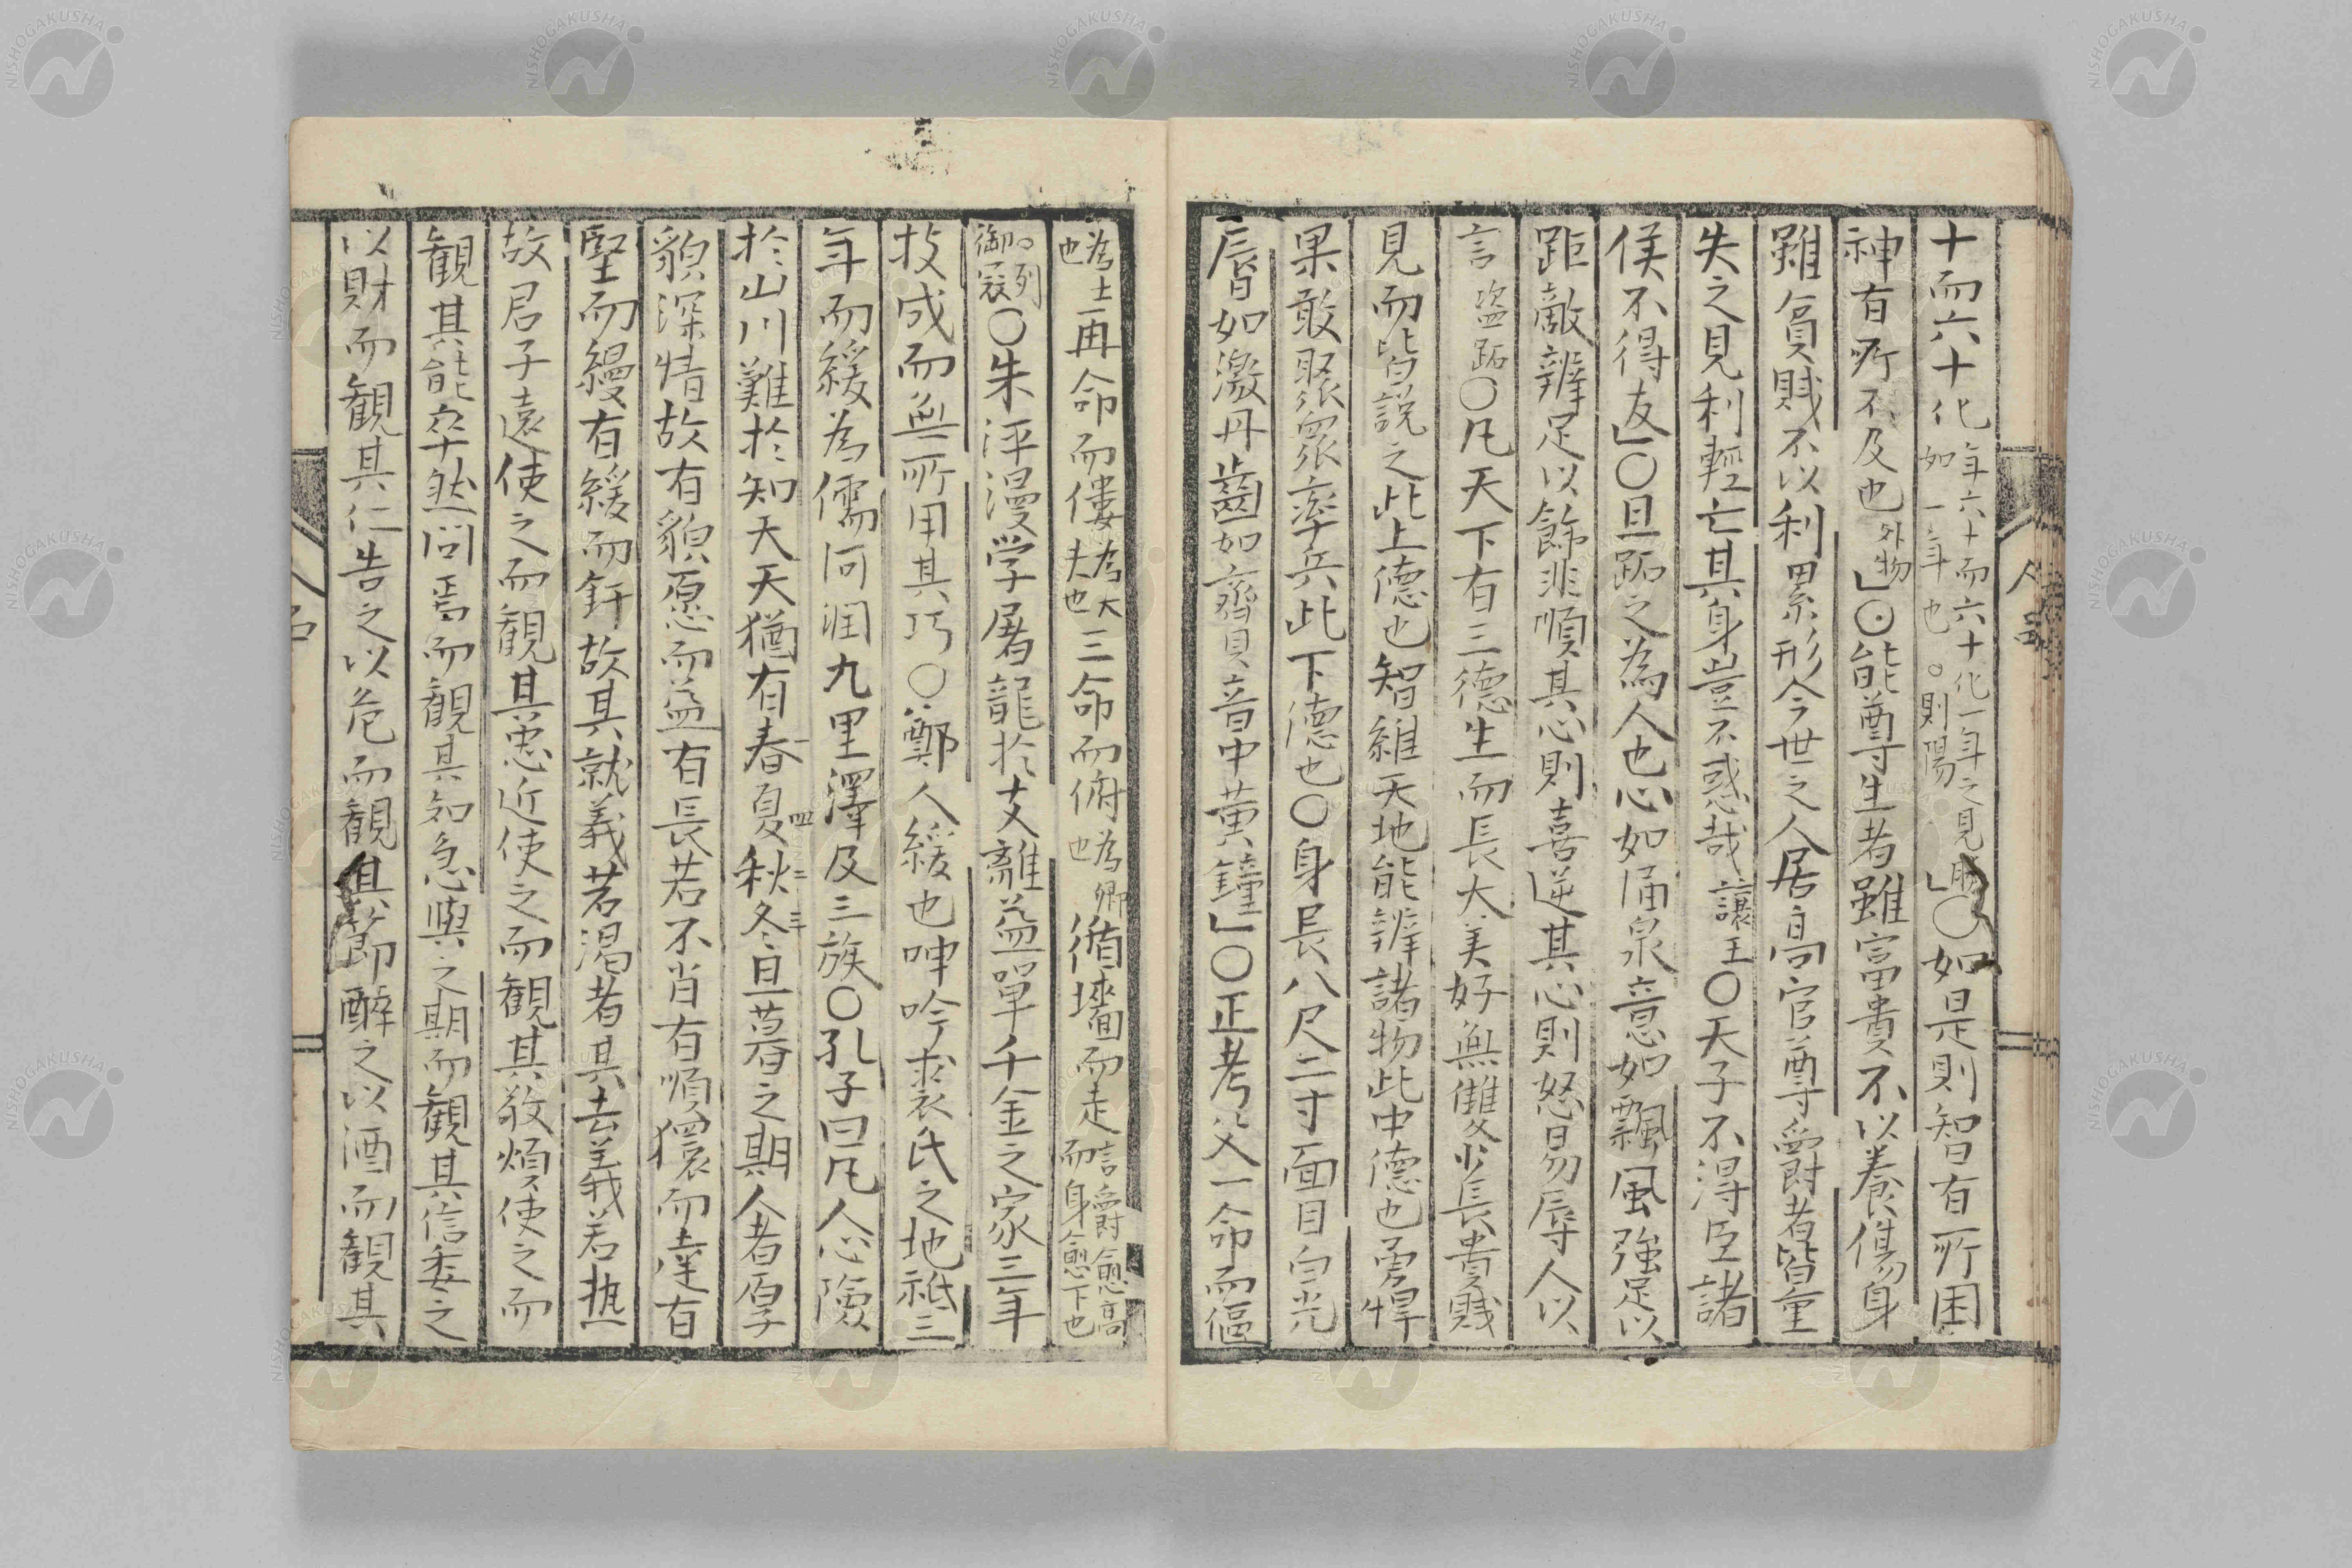 十而六十化年六十而六十化一年之見解如一年也。則陽」〇如是則智有所困
神有所不及也外物」〇能尊生者雖富貴不以養傷身
雖貧賤不以利累形今世之人居高官尊爵者皆重
失之見利輕亡其身豈不惑哉讓王〇天子不得臣諸
侯不得友」〇且跖之為人也心如涌泉意如飄風強足以
距敵辨足以飾非順其心則喜逆其心則怒易辱人以
言盜跖〇凡天下有三德生而長大美好無雙少長貴賤
見而皆說之此上德也智維天地能辨諸物此中德也勇悍
果敢聚衆率兵此下德也〇身長八尺二寸面目自光
脣如激丹齒如齊貝音中黃鐘」〇正考父一命而傴
為士也再命而僂為大夫也三命而俯為卿也循墻而走言爵愈高而身愈下也
〇列御寇〇朱泙漫学屠龍於支離益單千金之家三年
技成而無所用其巧〇鄭人緩也呻吟裘氏之地祗三
年而緩為儒河潤九里澤及三族〇孔子曰凡人心險
於山川難於知天天猶有春夏秋冬旦暮之期人者厚
貌深情故有貌愿而益有長若不肖有順獧而達有
堅而縵有緩而釬故其就義若渴者其去義若热
故君子遠使之而觀其忠近使之而觀其敬煩使之而
觀其能卒然問焉而觀其知急與之期而觀其信委之
以財而觀其仁告之以危而觀其節醉之以酒而觀其
NISHOGAKUSHA